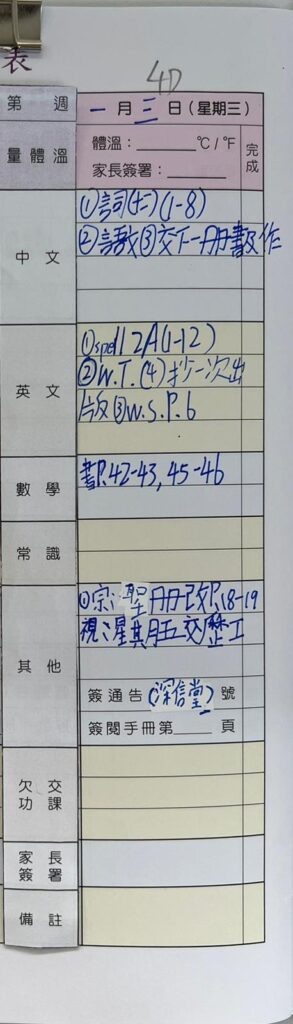 表
4D
第 週
一月三日(星期三)
量體溫
體溫：______℃/℉
家長簽署：______
完成
中文
①詞(十二)(1-8)
②語教③交下一冊書及作
英文
①spell 2A(1-12)
②W.T.(4)抄一次出
版③W.S.P.6
數學
書P.42-43, 45-46
常識
其他
①宗:聖冊改P.18-19
視:星期五交歷工
簽通告(深信堂)號
簽閱手冊第____頁
欠交功課
家長簽署
備註